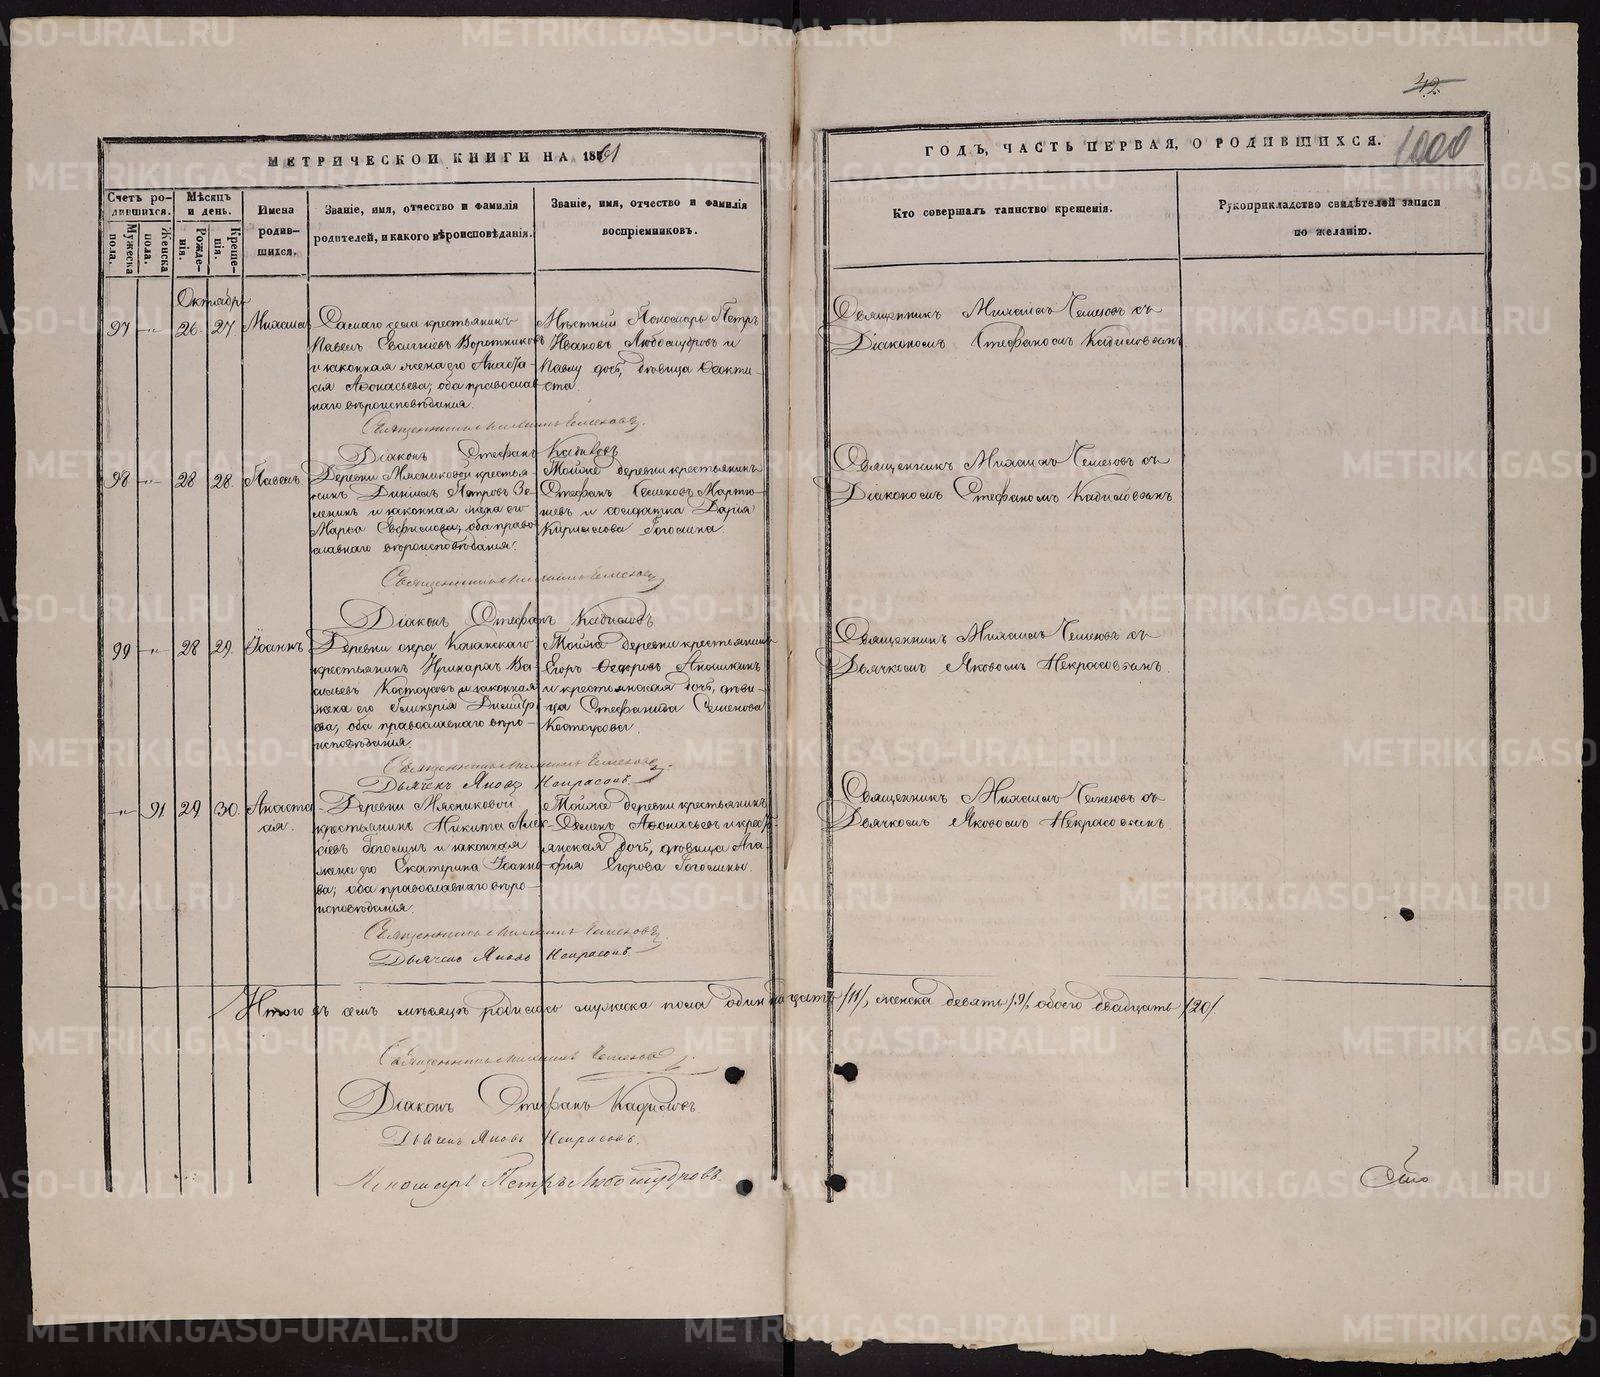 42
МЕТРИЧЕСКОЙ КНИГИ НА 1861
ГОДЪ, ЧАСТЬ ПЕРВАЯ, О РОДИВШИХСЯ.
1000
Счетъ родившихся.
Мужеска пола.
Женска пола.
Мѣсяцъ и день.
Рожденія.
Крещенія.
Имена родившихся.
Званіе, имя, отчество и фамилія
родителей, и какого вѣроисповѣданія.
Званіе, имя, отчество и фамилія
воспріемниковъ.
Кто совершалъ таинство крещенія.
Рукоприкладство свидѣтелей записи
по желанію.
Октябрь
97 -"- 26. 27 Михаилъ
Самаго села крестьянинъ
Павелъ Евсигніевъ Воротниковъ
и законная жена его Анаста-
сія Аѳонасьева, оба православ
наго вѣроисповѣданія.
Мѣстный Пономарь Петръ
Ивановъ Любомудровъ и
Павлу дочь, дѣвица Ѳеокти-
ста.
Священникъ Михаилъ Чемезовъ съ
Діакономъ Стефаномъ
Священникъ Михаилъ Чемезовъ.
Діаконъ Стефанъ
98 -"- 28 28 Павелъ
Деревни Мясниковой крестья-
нинъ Даніилъ Петровъ Зе-
ленинъ и законная жена его
Марѳа Евфимова, оба право-
славнаго вѣроисповѣданія.
Тойже деревни крестьянинъ
Стефанъ
и солдатка Дарія
Кирилова Гоголина.
Священникъ Михаилъ Чемезовъ съ
Діакономъ Стефаномъ
Священникъ Михаилъ Чемезовъ
Діаконъ Стефанъ
99 -"- 28 29. Іоаннъ
Деревни озера
крестьянинъ Никаръ Ва-
сильевъ Костоусовъ и законная
жена его Гликерія Дмитрі-
ева, оба православнаго вѣро-
исповѣданія.
Тойже деревни крестьянинъ
Егоръ Ѳедоровъ
и крестьянская дочь, дѣви-
ца Стефанида Семенова
Костоусова.
Священникъ Михаилъ Чемезовъ съ
Дьячкомъ Яковомъ Некрасовымъ.
Священникъ Михаилъ Чемезовъ.
Дьячекъ Яковъ Некрасовъ
-"- 91. 29. 30. Анаста
сія.
Деревни Мясниковой
крестьянинъ Никита Алек-
сіевъ Гоголинъ и законная
жена его Екатерина Іоанно
ва, оба православнаго вѣро-
исповѣданія.
Тойже деревни крестьянинъ
Семенъ Аѳонасьевъ и крестъ
янская дочь, дѣвица Ага-
фія Егорова Гоголины.
Священникъ Михаилъ Чемезовъ съ
Дьячкомъ Яковомъ Некрасовымъ.
Священникъ Михаилъ Чемезовъ
Дьячекъ Яковъ Некрасовъ
Итого въ семъ мѣсяцѣ родилось мужска пола одиннадцать /11/, женска девять /9/, обоего двадцать /20/.
Священникъ Михаилъ Чемезовъ
Діаконъ Стефанъ
Дьячекъ Яковъ Некрасовъ.
Пономарь Петръ Любомудровъ.
METRIKI.GASO-URAL.RU